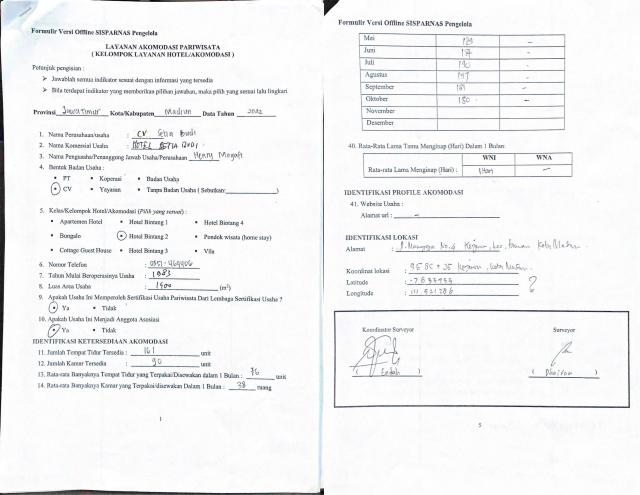 Formulir Versi Offline SISPARNAS Pengelola
LAYANAN AKOMODASI PARIWISATA
( KELOMPOK LAYANAN HOTEL/AKOMODASI )
Petunjuk pengisian :
➢ Jawablah semua indikator sesuai dengan informasi yang tersedia
➢ Bila terdapat indikator yang memberikan pilihan jawaban, maka pilih yang sesuai lalu lingkari
Provinsi Jawa Timur Kota/Kabupaten Madiun Data Tahun 2022
1. Nama Perusahaan/usaha : CV Setia Budi
2. Nama Komersial Usaha : HOTEL SETIA BUDI
3. Nama Pengusaha/Penanggung Jawab Usaha/Perusahaan Henry
4. Bentuk Badan Usaha :
• PT • Koperasi • Badan Usaha
• CV • Yayasan • Tanpa Badan Usaha ( Sebutkan: )
5. Kelas/Kelompok Hotel/Akomodasi (Pilih yang sesuai) :
• Apartemen Hotel • Hotel Bintang 1 • Hotel Bintang 4
• Bungalo • Hotel Bintang 2 • Pondok wisata (home stay)
• Cottage Guest House • Hotel Bintang 3 • Vila
6. Nomor Telefon : 0351-464406
7. Tahun Mulai Beroperasinya Usaha : 1983
8. Luas Area Usaha : 1400 (m²)
9. Apakah Usaha Ini Memperoleh Sertifikasi Usaha Pariwisata Dari Lembaga Sertifikasi Usaha ?
• Ya • Tidak
10. Apakah Usaha Ini Menjadi Anggota Asosiasi
• Ya • Tidak
IDENTIFIKASI KETERSEDIAAN AKOMODASI
11. Jumlah Tempat Tidur Tersedia : 161 unit
12. Jumlah Kamar Tersedia : 90 unit
13. Rata-rata Banyaknya Tempat Tidur yang Terpakai/Disewakan dalam 1 Bulan : 76 unit
14. Rata-rata Banyaknya Kamar yang Terpakai/disewakan Dalam 1 Bulan : 38 ruang
1
Formulir Versi Offline SISPARNAS Pengelola
Mei 189 -
Juni 187 -
Juli 190 -
Agustus 197 -
September 181 -
Oktober 180 -
November
Desember
40. Rata-Rata Lama Tamu Menginap (Hari) Dalam 1 Bulan:
WNI WNA
Rata-rata Lama Menginap (Hari) : 1 Hari -
IDENTIFIKASI PROFILE AKOMODASI
41. Website Usaha :
Alamat url : -
IDENTIFIKASI LOKASI
Alamat : Jl. Mangga No. 4 Kejuron, Kec. Taman Kota Madiun
Koordinat lokasi : 95BC + JC Kejuron, Kota Madiun
Latitude :
Longitude : 111.521286
?
Koordinator Surveyor Surveyor
( Endah ) ( )
5